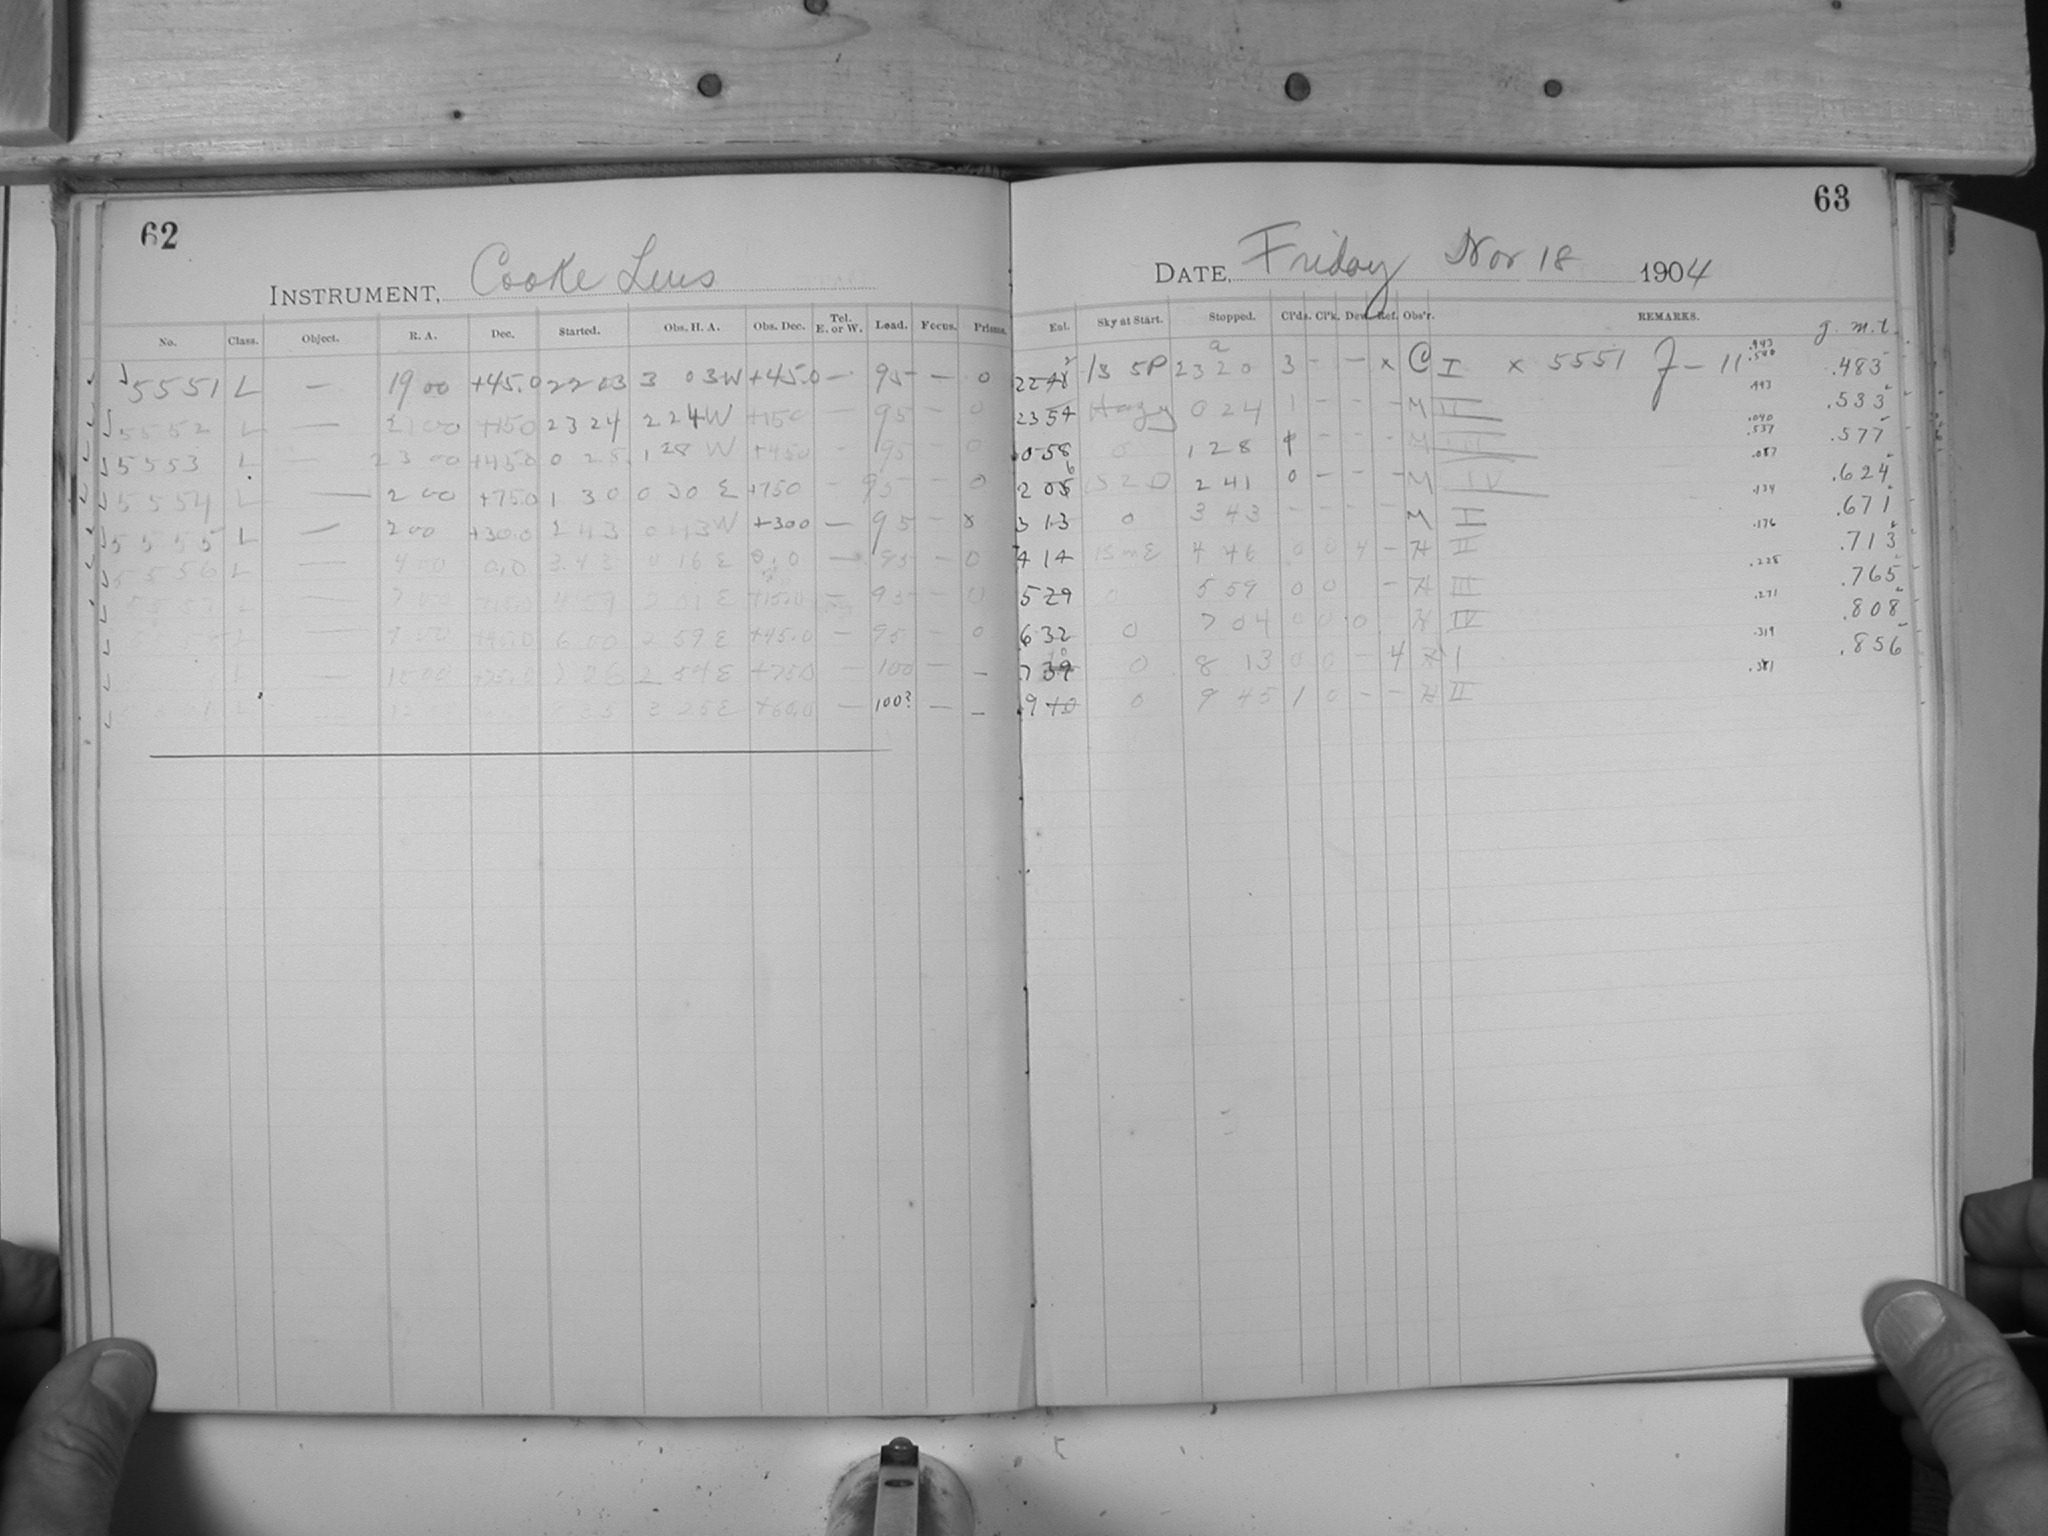 62
INSTRUMENT, Cooke Lens
No. Class. Object. R. A. Dec. Started. Obs. H. A. Obs. Dec. Tel. E. or W. Lead. Focus. Prisms.
5551 L — 19 00 +45.0 22 03 3 03 W +45.0 — 95 — 0
5552 L — 21 00 +15.0 23 24 2 24 W +15.0 — 95 — 0
5553 L — 23 00 +45.0 0 28 1 28 W +45.0 — 95 — 0
5554 L — 2 00 +75.0 1 30 0 30 E +75.0 — 95 — 0
5555 L — 2 00 +30.0 2 43 0 43 W +30.0 — 95 — x
5556 L — 4 00 0.0 3.43 0 16 E 0.0 — 95 — 0
L — 7 00 +15.0 4 59 2 01 E +15.0 — 95 — 0
L — +45.0 6 00 2 59 E +45.0 — 95 — 0
L — 10 00 +75.0 7 06 2 54 E +75.0 — 100 — —
L 3 25 E +60.0 — 100? — —
63
DATE, Friday Nov 18 1904
Sky at Start. Stopped. Cl'ds. Cl'k. Dew. Ref. Obs'r. REMARKS. g. m. t.
22 48 1s 5P 23 20 3 - - x C I x 5551 J - 11 .483
23 54 Hazy 0 24 1 - - - M II .493 .533
0 58 0 1 28 - - - M III .577
2 05 2 41 0 - - - M IV .087 .624
3 13 0 3 43 - - - - M I .134 .671
4 14 4 46 0 0 4 - H II .176 .713
5 29 0 5 59 0 0 - H III .228 .765
6 32 0 7 04 0 0 0 - H IV .271 .808
7 39 0 8 13 0 0 - 4 H I .319 .856
9 10 0 9 45 1 0 - - H II .381